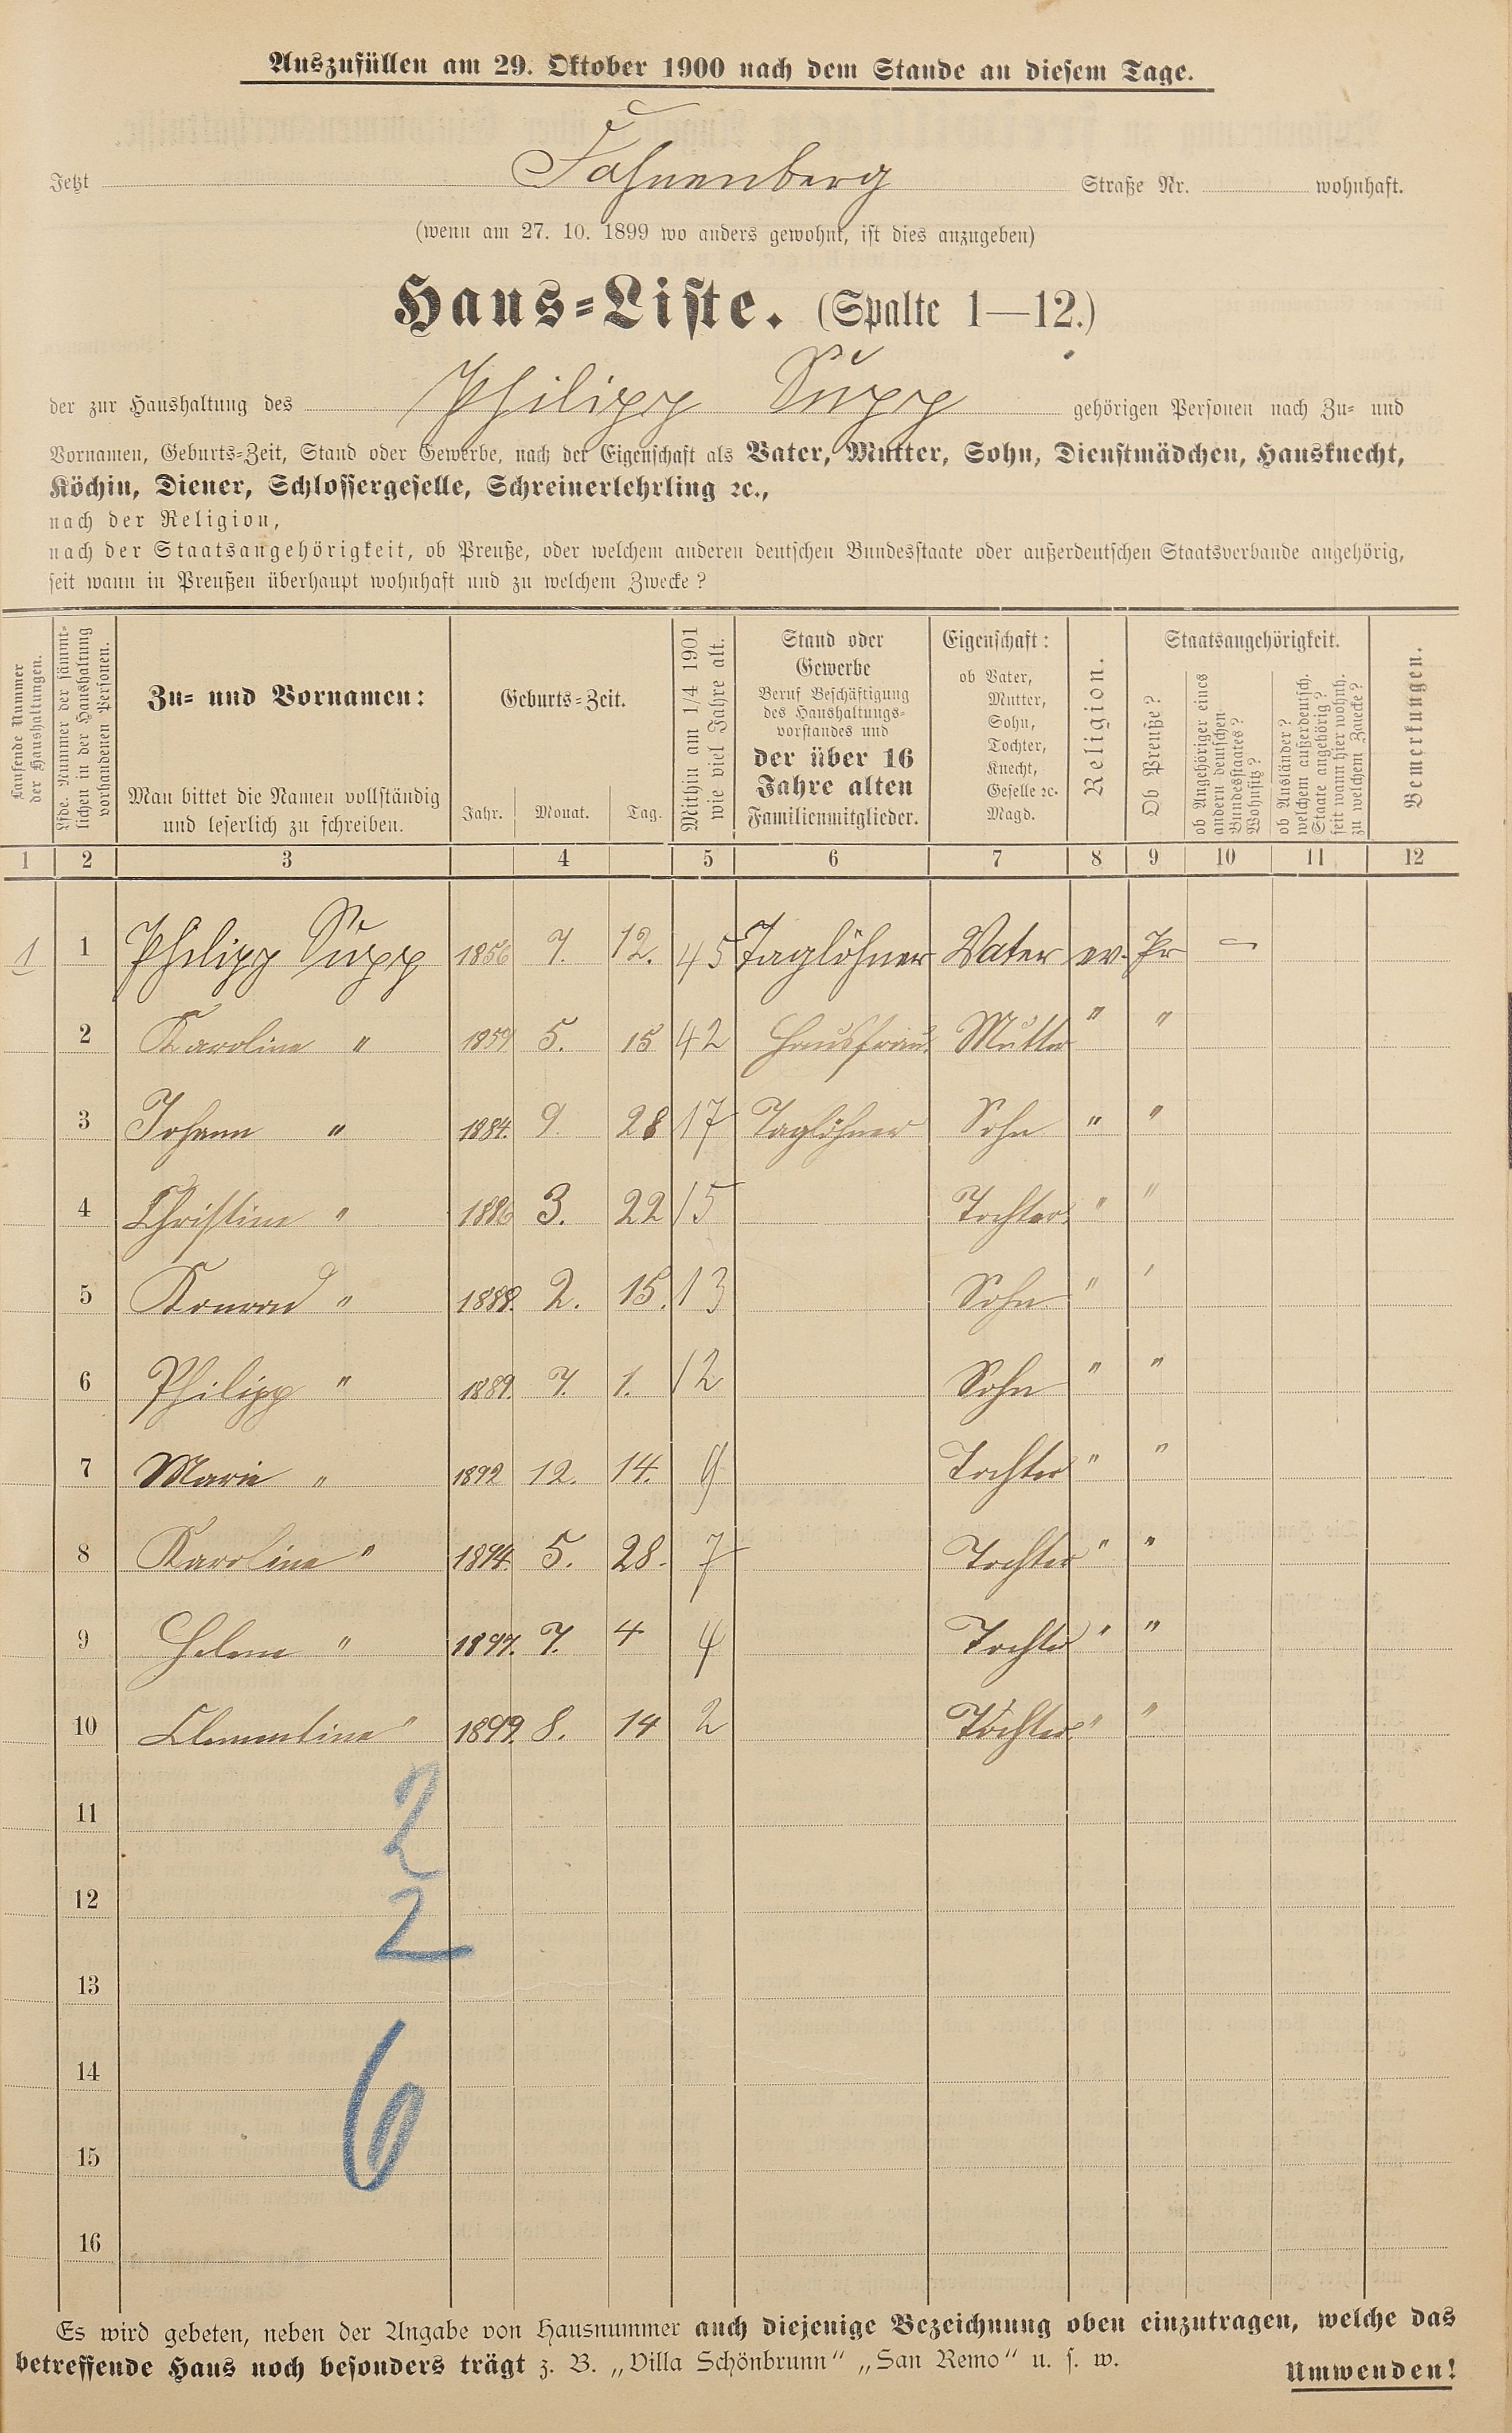 Auszufüllen am 29. Oktober 1900 nach dem Stande an diesem Tage.
Jetzt Fahnenberg Straße Nr. wohnhaft.
(wenn am 27. 10. 1899 wo anders gewohnt, ist dies anzugeben)
Haus-Liste. (Spalte 1—12.)
der zur Haushaltung des Philipp Supp gehörigen Personen nach Zu- und
Vornamen, Geburts-Zeit, Stand oder Gewerbe, nach der Eigenschaft als Vater, Mutter, Sohn, Dienstmädchen, Hausknecht,
Köchin, Diener, Schlossergeselle, Schreinerlehrling ꝛc.,
nach der Religion,
nach der Staatsangehörigkeit, ob Preuße, oder welchem anderen deutschen Bundesstaate oder außerdeutschen Staatsverbande angehörig,
seit wann in Preußen überhaupt wohnhaft und zu welchem Zwecke?
Laufende Nummer
der Haushaltungen.
Lfde. Nummer der sämmt-
lichen in der Haushaltung
vorhandenen Personen.
Zu- und Vornamen:
Man bittet die Namen vollständig
und leserlich zu schreiben.
Geburts-Zeit.
Jahr. Monat. Tag.
Mithin am 1/4 1901
wie viel Jahre alt.
Stand oder
Gewerbe
Beruf Beschäftigung
des Haushaltungs-
vorstandes und
der über 16
Jahre alten
Familienmitglieder.
Eigenschaft:
ob Vater,
Mutter,
Sohn,
Tochter,
Knecht,
Geselle ꝛc.
Magd.
Religion.
Staatsangehörigkeit.
Ob Preuße?
ob Angehöriger eines
andern deutschen
Bundesstaates?
Wohnsitz?
ob Ausländer?
welchem außerdeutsch.
Staate angehörig?
seit wann hier wohnh.
zu welchem Zwecke?
Bemerkungen.
1 2 3 4 5 6 7 8 9 10 11 12
1 1 Philipp Supp 1856 7. 12. 45 Taglöhner Vater ev. Pr —
2 Karoline " 1859 5. 15 42 Hausfrau. Mutter " "
3 Johann " 1884. 9. 28 17 Taglöhner Sohn " "
4 Christine " 1886 3. 22 15 Tochter " "
5 Konrad " 1888. 2. 15. 13 Sohn " "
6 Philipp " 1889. 7. 1. 12 Sohn " "
7 Marie " 1892 12. 14. 9 Tochter " "
8 Karoline " 1894. 5. 28. 7 Tochter " "
9 Helene " 1897. 7. 4 4 Tochter " "
10 Clementine " 1899. 8. 14 2 Tochter " "
11
2
12
2
13
14
6
15
16
Es wird gebeten, neben der Angabe von Hausnummer auch diejenige Bezeichnung oben einzutragen, welche das
betreffende Haus noch besonders trägt z. B. „Villa Schönbrunn“ „San Remo“ u. s. w.
Umwenden!